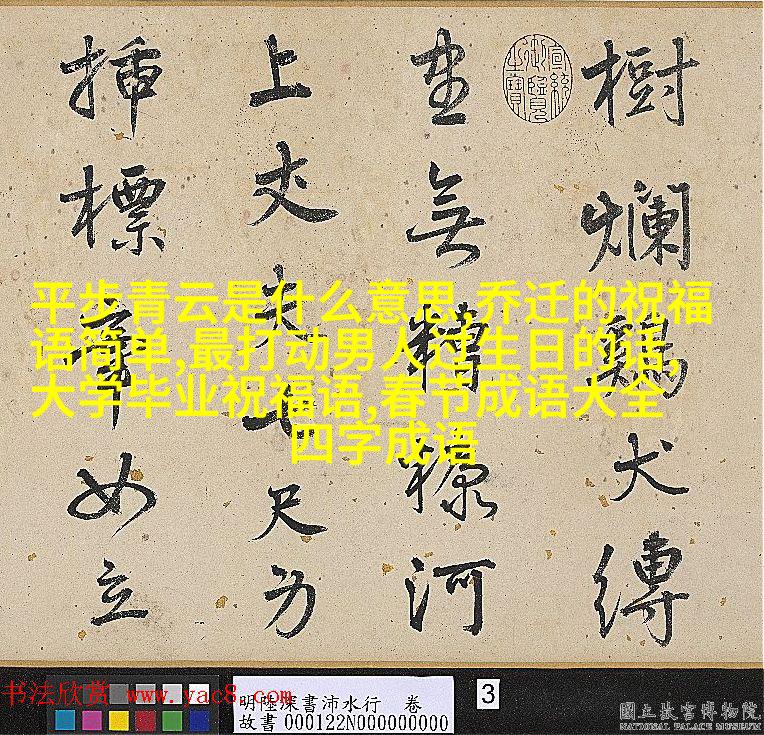 樹爛鷄犬縛
無糟糠河
上丈夫七尺
插標如立
宣統御覽之寶
平步青云是什么意思,乔迁的祝福
语简单,最打动男人过生日的话,
大学毕业祝福语,春节成语大全
四字成语
书法欣赏 www.yac8.com
明陸深書沛水行　卷
故書 000122N000000000
3
國立故宮博物院
NATIONAL PALACE MUSEUM